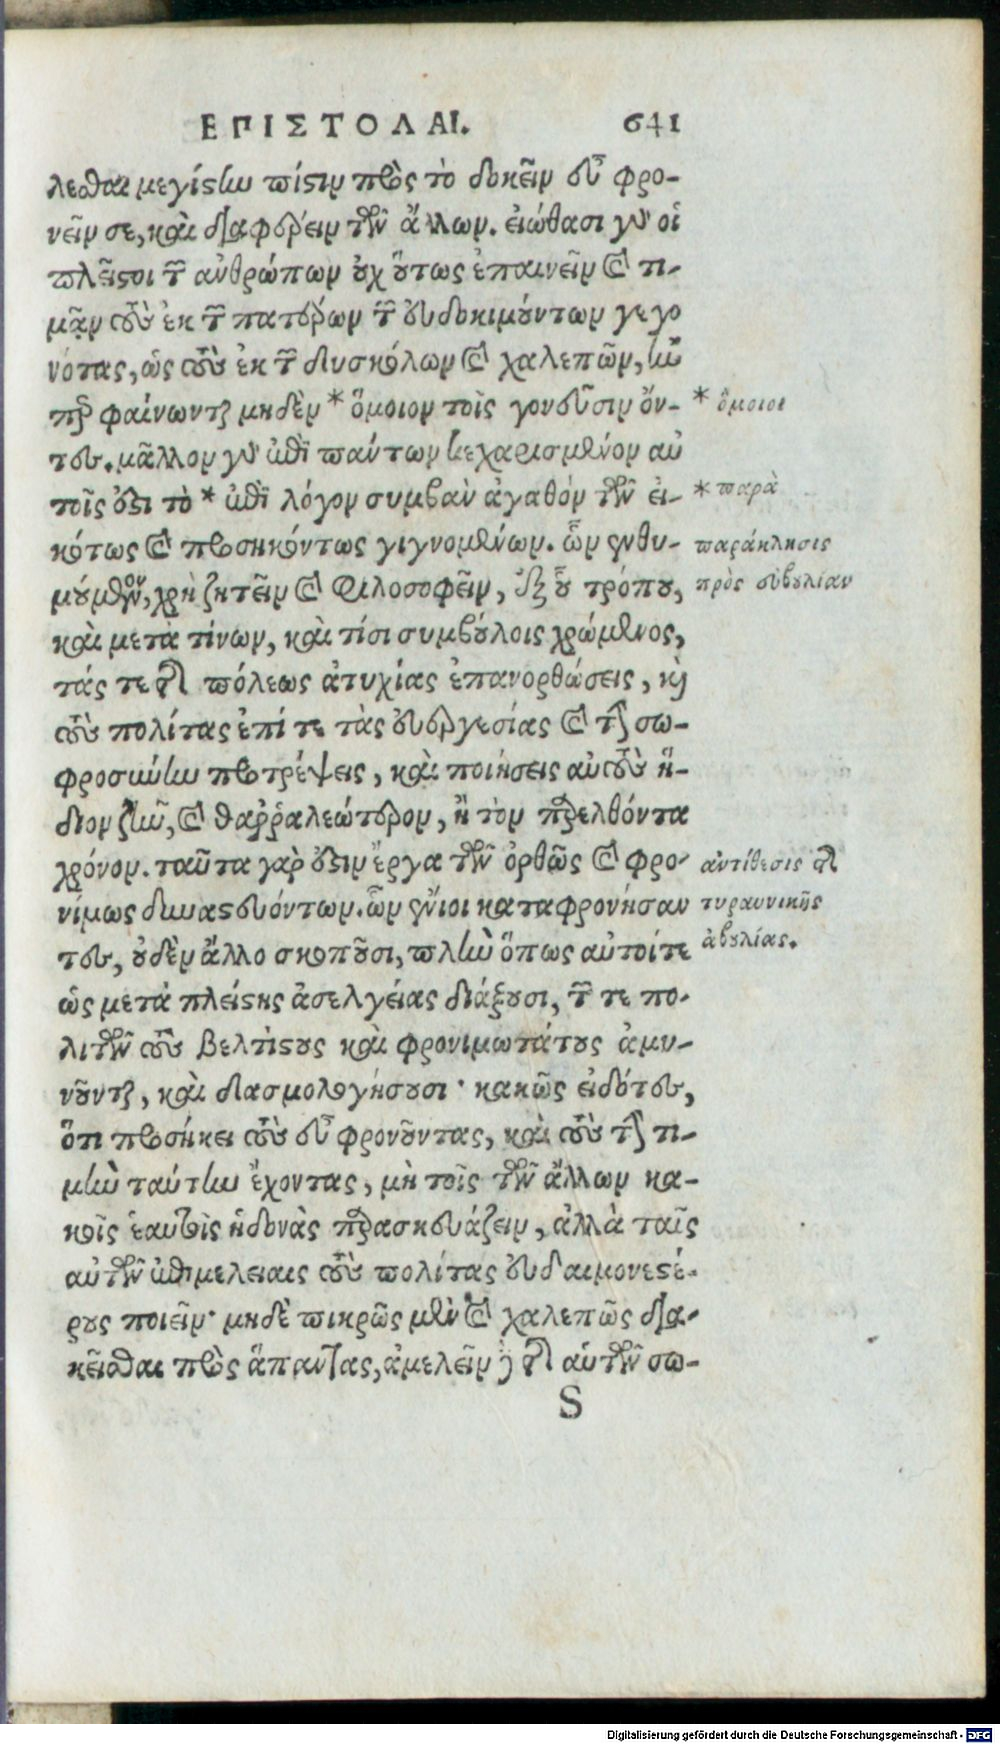 ΕΠΙΣΤΟΛΑΙ. 641
λεσθαι μεγίστην πίστιν πρὸς τὸ δοκεῖν εὖ φρο-
νεῖν σε, καὶ διαφέρειν τῶν ἄλλων. εἰώθασι γὰρ οἱ
πλεῖστοι τῶν ἀνθρώπων οὐχ οὕτως ἐπαινεῖν καὶ τι-
μᾷν τοὺς ἐκ τῶν πατέρων τῶν εὐδοκιμούντων γεγο
νότας, ὡς τοὺς ἐκ τῶν δυσκόλων καὶ χαλεπῶν, ἢν
περ φαίνωνται μηδὲν * ὅμοιον τοῖς γονεῦσιν ὄν-
τες. μᾶλλον γὰρ ἐπὶ πάντων κεχαρισμένον αὐ
τοῖς ἐστι τὸ * ἐπὶ λόγον συμβὰν ἀγαθὸν τῶν εἰ-
κότως καὶ προσηκόντως γιγνομένων. ὧν ἐνθυ-
μούμενον, χρὴ ζητεῖν καὶ φιλοσοφεῖν, ἐξ οὗ τρόπου,
καὶ μετὰ τίνων, καὶ τίσι συμβούλοις χρώμενος,
τάς τε τῆς πόλεως ἀτυχίας ἐπανορθώσεις, καὶ
τοὺς πολίτας ἐπί τε τὰς εὐεργεσίας καὶ τὴν σω-
φροσύνην προτρέψεις, καὶ ποιήσεις αὐτοὺς ἥ-
διον ζῆν, καὶ θαῤῥαλεώτερον, ἢ τὸν παρελθόντα
χρόνον. ταῦτα γάρ ἐστιν ἔργα τῶν ὀρθῶς καὶ φρο-
νίμως δυναστευόντων. ὧν ἔνιοι καταφρονήσαν
τες, οὐδὲν ἄλλο σκοποῦσι, πλὴν ὅπως αὐτοί τε
ὡς μετὰ πλείστης ἀσελγείας διάξουσι, τῶν τε πο-
λιτῶν τοὺς βελτίστους καὶ φρονιμωτάτους ἀμυ-
νοῦνται, καὶ δασμολογήσουσι· κακῶς εἰδότες,
ὅτι προσήκει τοὺς εὖ φρονοῦντας, καὶ τοὺς τὴν τι-
μὴν ταύτην ἔχοντας, μὴ τοῖς τῶν ἄλλων κα-
κοῖς ἑαυτοῖς ἡδονὰς παρασκευάζειν, ἀλλὰ ταῖς
αὑτῶν ἐπιμελείαις τοὺς πολίτας εὐδαιμονεστέ-
ρους ποιεῖν· μηδὲ πικρῶς μὲν καὶ χαλεπῶς δια-
κεῖσθαι πρὸς ἅπαντας, ἀμελεῖν δὲ τῆς αὑτῶν σω-
S
* ὅμοιοι
* παρὰ
παράκλησις
πρὸς εὐβουλίαν
ἀντίθεσις τῆς
τυραννικῆς
ἀβουλίας.
Digitalisierung gefördert durch die Deutsche Forschungsgemeinschaft - DFG